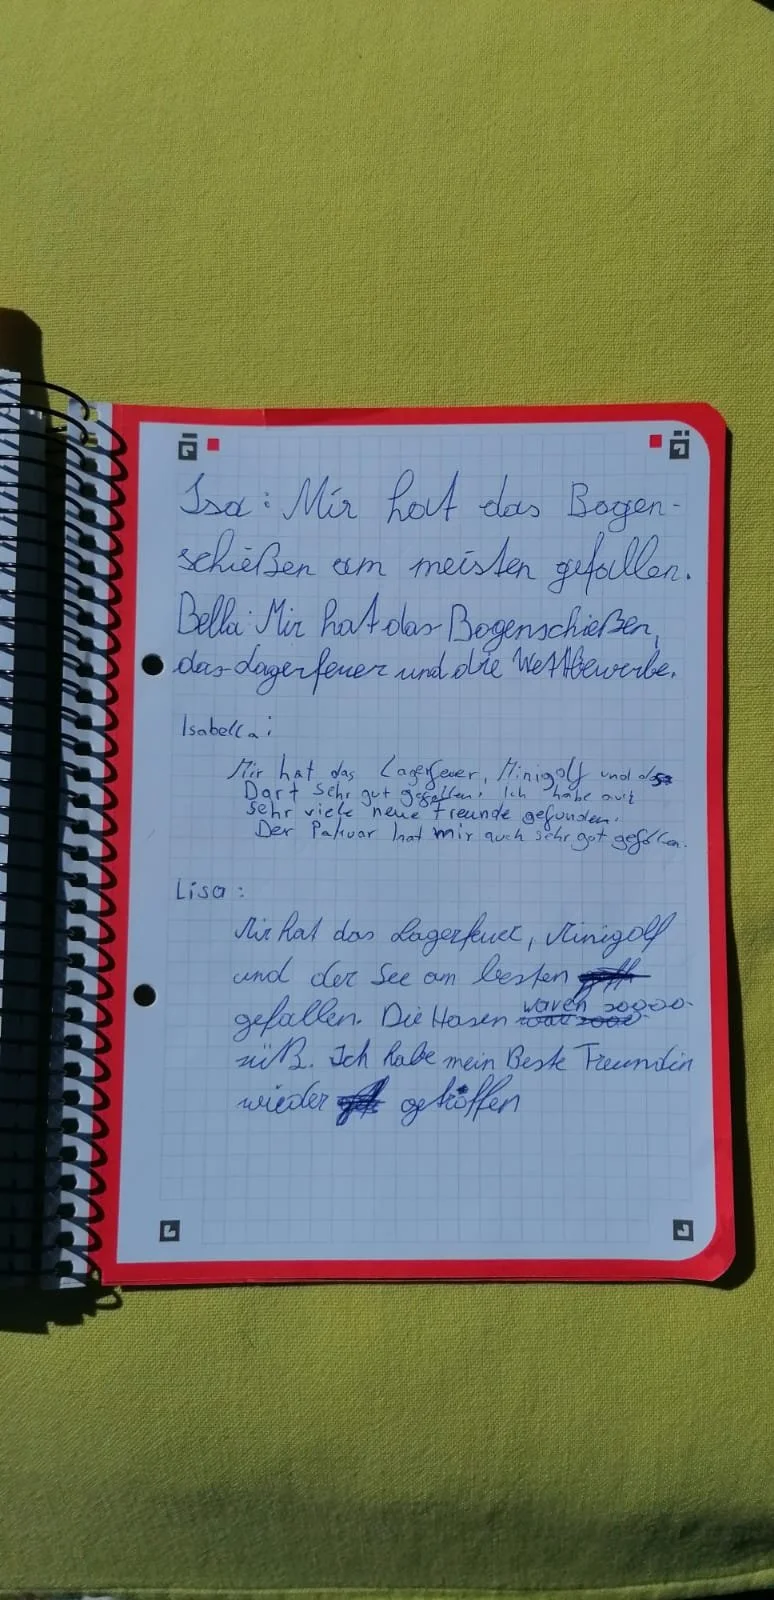 Isa: Mir hat das Bogen-
schießen am meisten gefallen.
Bella: Mir hat das Bogenschießen,
das Lagerfeuer und die Wettbewerbe.
Isabella:
Mir hat das Lagerfeuer, Minigolf und das
Dart sehr gut gefallen. Ich habe auch
sehr viele neue Freunde gefunden.
Der Pakuar hat mir auch sehr gut gefallen.
Lisa:
Mir hat das Lagerfeuer, Minigolf
und der See am besten
gefallen. Die Hasen waren soooo
süß. Ich habe mein Beste Freundin
wieder getroffen